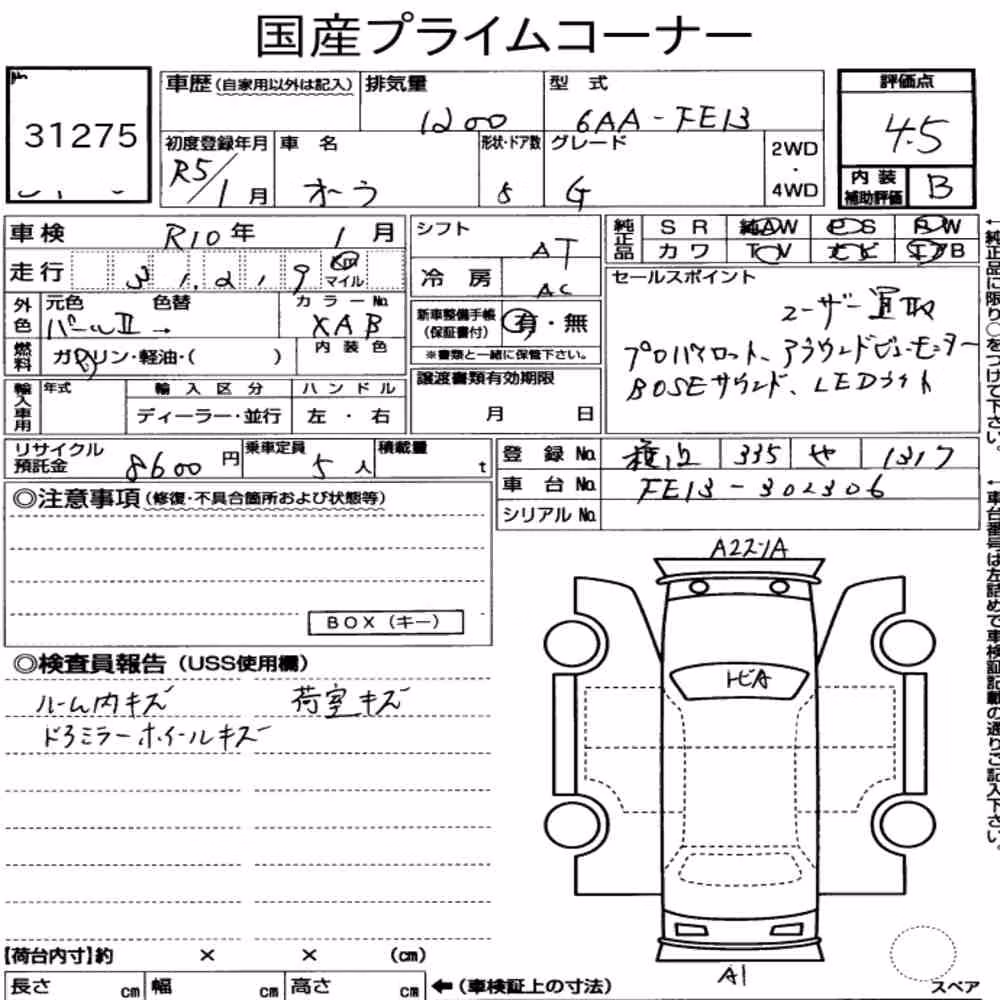 国産プライムコーナー
31275
車歴(自家用以外は記入) 排気量 1200 型式 6AA-FE13 評価点 4.5
初度登録年月 R5/1月 車名 オーラ 形状・ドア数 5 グレード G 2WD・4WD 内装補助評価 B
車検 R10年 1月 シフト AT 純正品 SR 純AW PS PW
走行 31,219 km マイル 冷房 AC カワ TV ナビ エアB
外色 元色 パールⅡ 色替 → カラーNo. XAB 新車整備手帳(保証書付) 有・無 ※書類と一緒に保管下さい。
燃料 ガソリン・軽油・( ) 内装色
セールスポイント
ユーザー買取
プロパイロット、アラウンドビューモニター
BOSEサウンド、LEDライト
輸入車用 年式 輸入区分 ディーラー・並行 ハンドル 左・右 譲渡書類有効期限 月 日
リサイクル預託金 8600円 乗車定員 5人 積載量 t 登録No. 335 や 1317
車台No. FE13-302306
シリアルNo.
◎注意事項(修復・不具合箇所および状態等)
BOX(キー)
◎検査員報告(USS使用欄)
ルーム内キズ 荷室キズ
ドアミラーホイールキズ
A2スリA
トビA
A1
スペア
【荷台内寸】約 × × (cm)
長さ cm 幅 cm 高さ cm ←(車検証上の寸法)
←純正品に限り○をつけて下さい。
←車台番号は左詰めで車検証記載の通りご記入下さい。